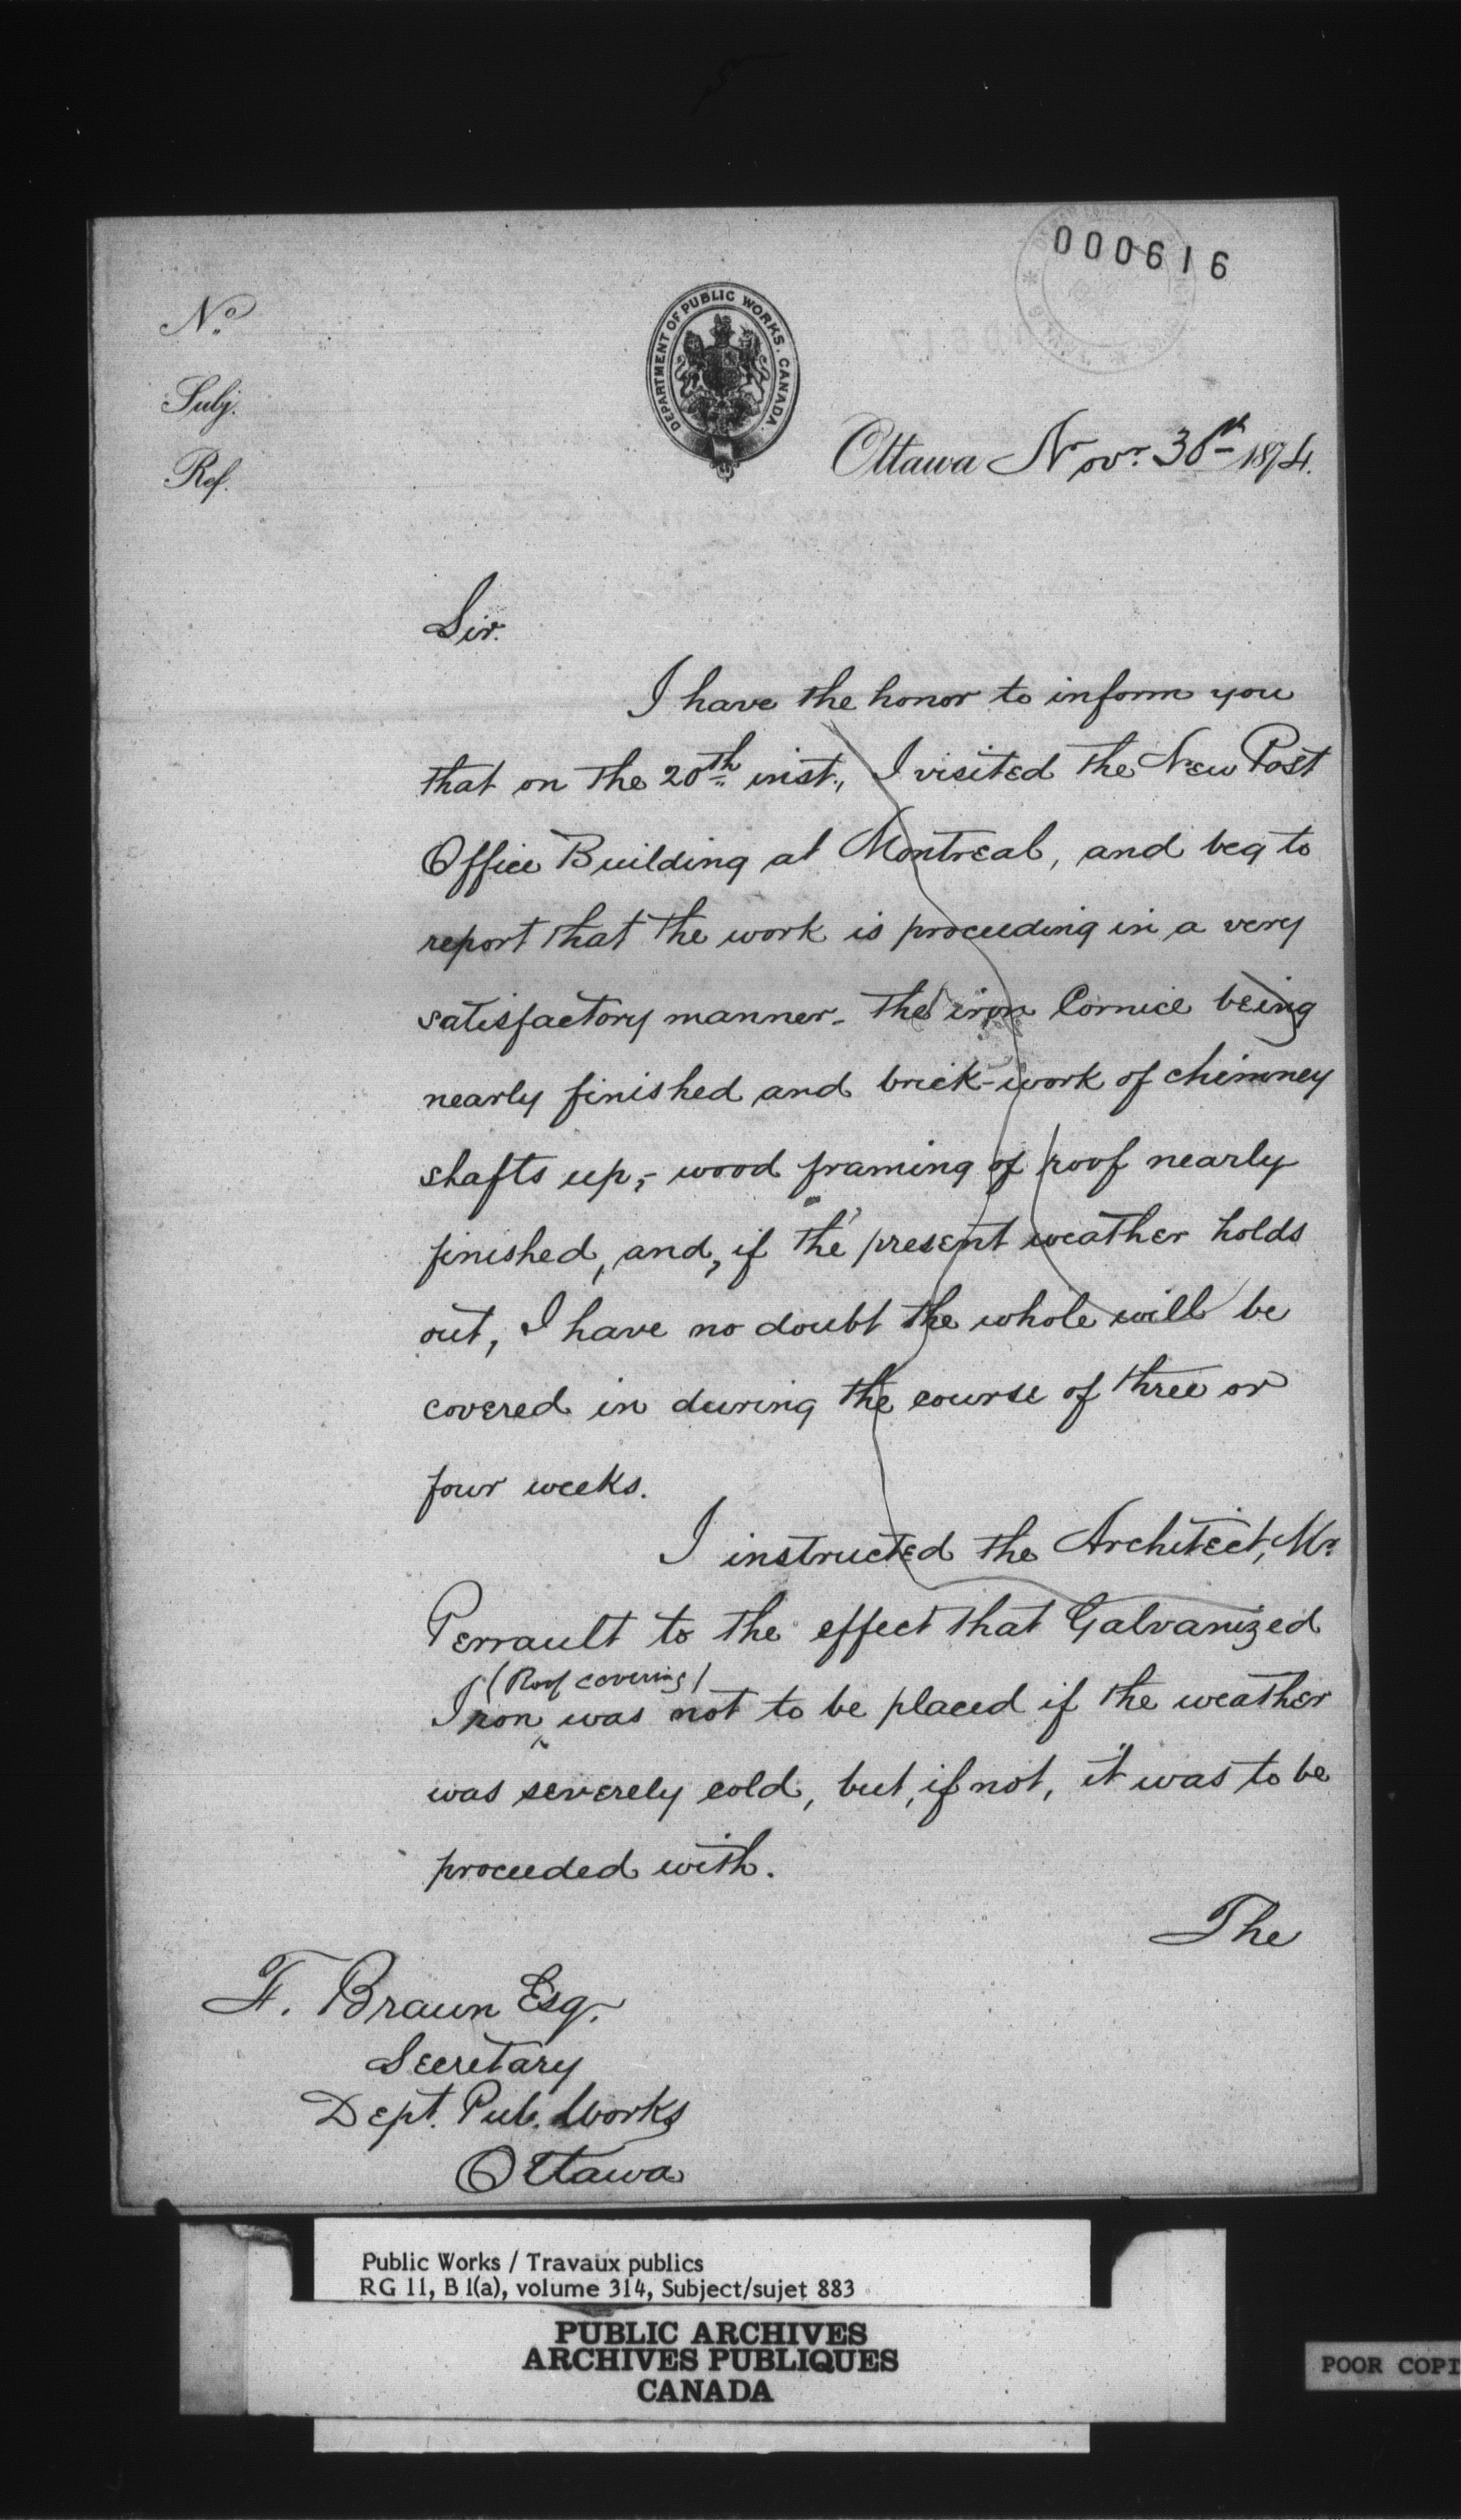 000616
No
Subj.
Ref.
DEPARTMENT OF PUBLIC WORKS. CANADA.
Ottawa Novr. 30th 1874.
Sir.
I have the honor to inform you
that on the 20th inst., I visited the New Post
Office Building at Montreal, and beg to
report that the work is proceeding in a very
satisfactory manner - the iron Cornice being
nearly finished and brick-work of chimney
shafts up, - wood framing of roof nearly
finished, and, if the present weather holds
out, I have no doubt the whole will be
covered in during the course of three or
four weeks.
I instructed the Architect, Mr.
Perrault to the effect that Galvanized
(Roof covering)
Iron ^ was not to be placed if the weather
was severely cold, but, if not, it was to be
proceeded with.
The
F. Braun Esq.
Secretary
Dept. Pub. Works
Ottawa
Public Works / Travaux publics
RG 11, B 1(a), volume 314, Subject/sujet 883
PUBLIC ARCHIVES
ARCHIVES PUBLIQUES
CANADA
POOR COPI